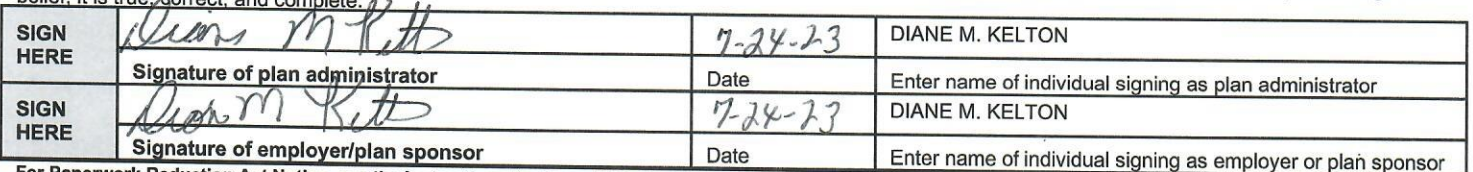 belief, it is true, correct, and complete.
SIGN HERE Diane M Kelton 7-24-23 DIANE M. KELTON
Signature of plan administrator Date Enter name of individual signing as plan administrator
SIGN HERE Diane M Kelton 7-24-23 DIANE M. KELTON
Signature of employer/plan sponsor Date Enter name of individual signing as employer or plan sponsor
For Paperwork Reduction Act